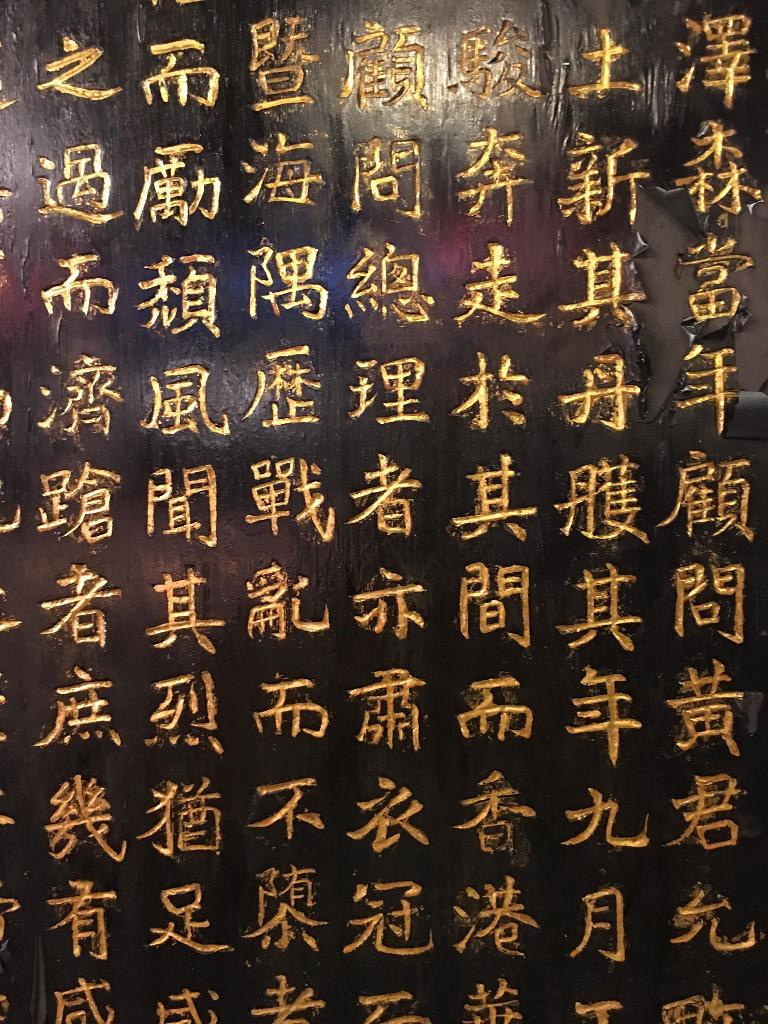 澤森當年顧問黃君允畋
土新其丹臒其年九月
駿奔走於其間而香港華
顧問總理者亦肅衣冠
暨海隅歷戰亂而不者
而勵頽風聞其烈猶足感
之過而濟蹌者庶幾有感